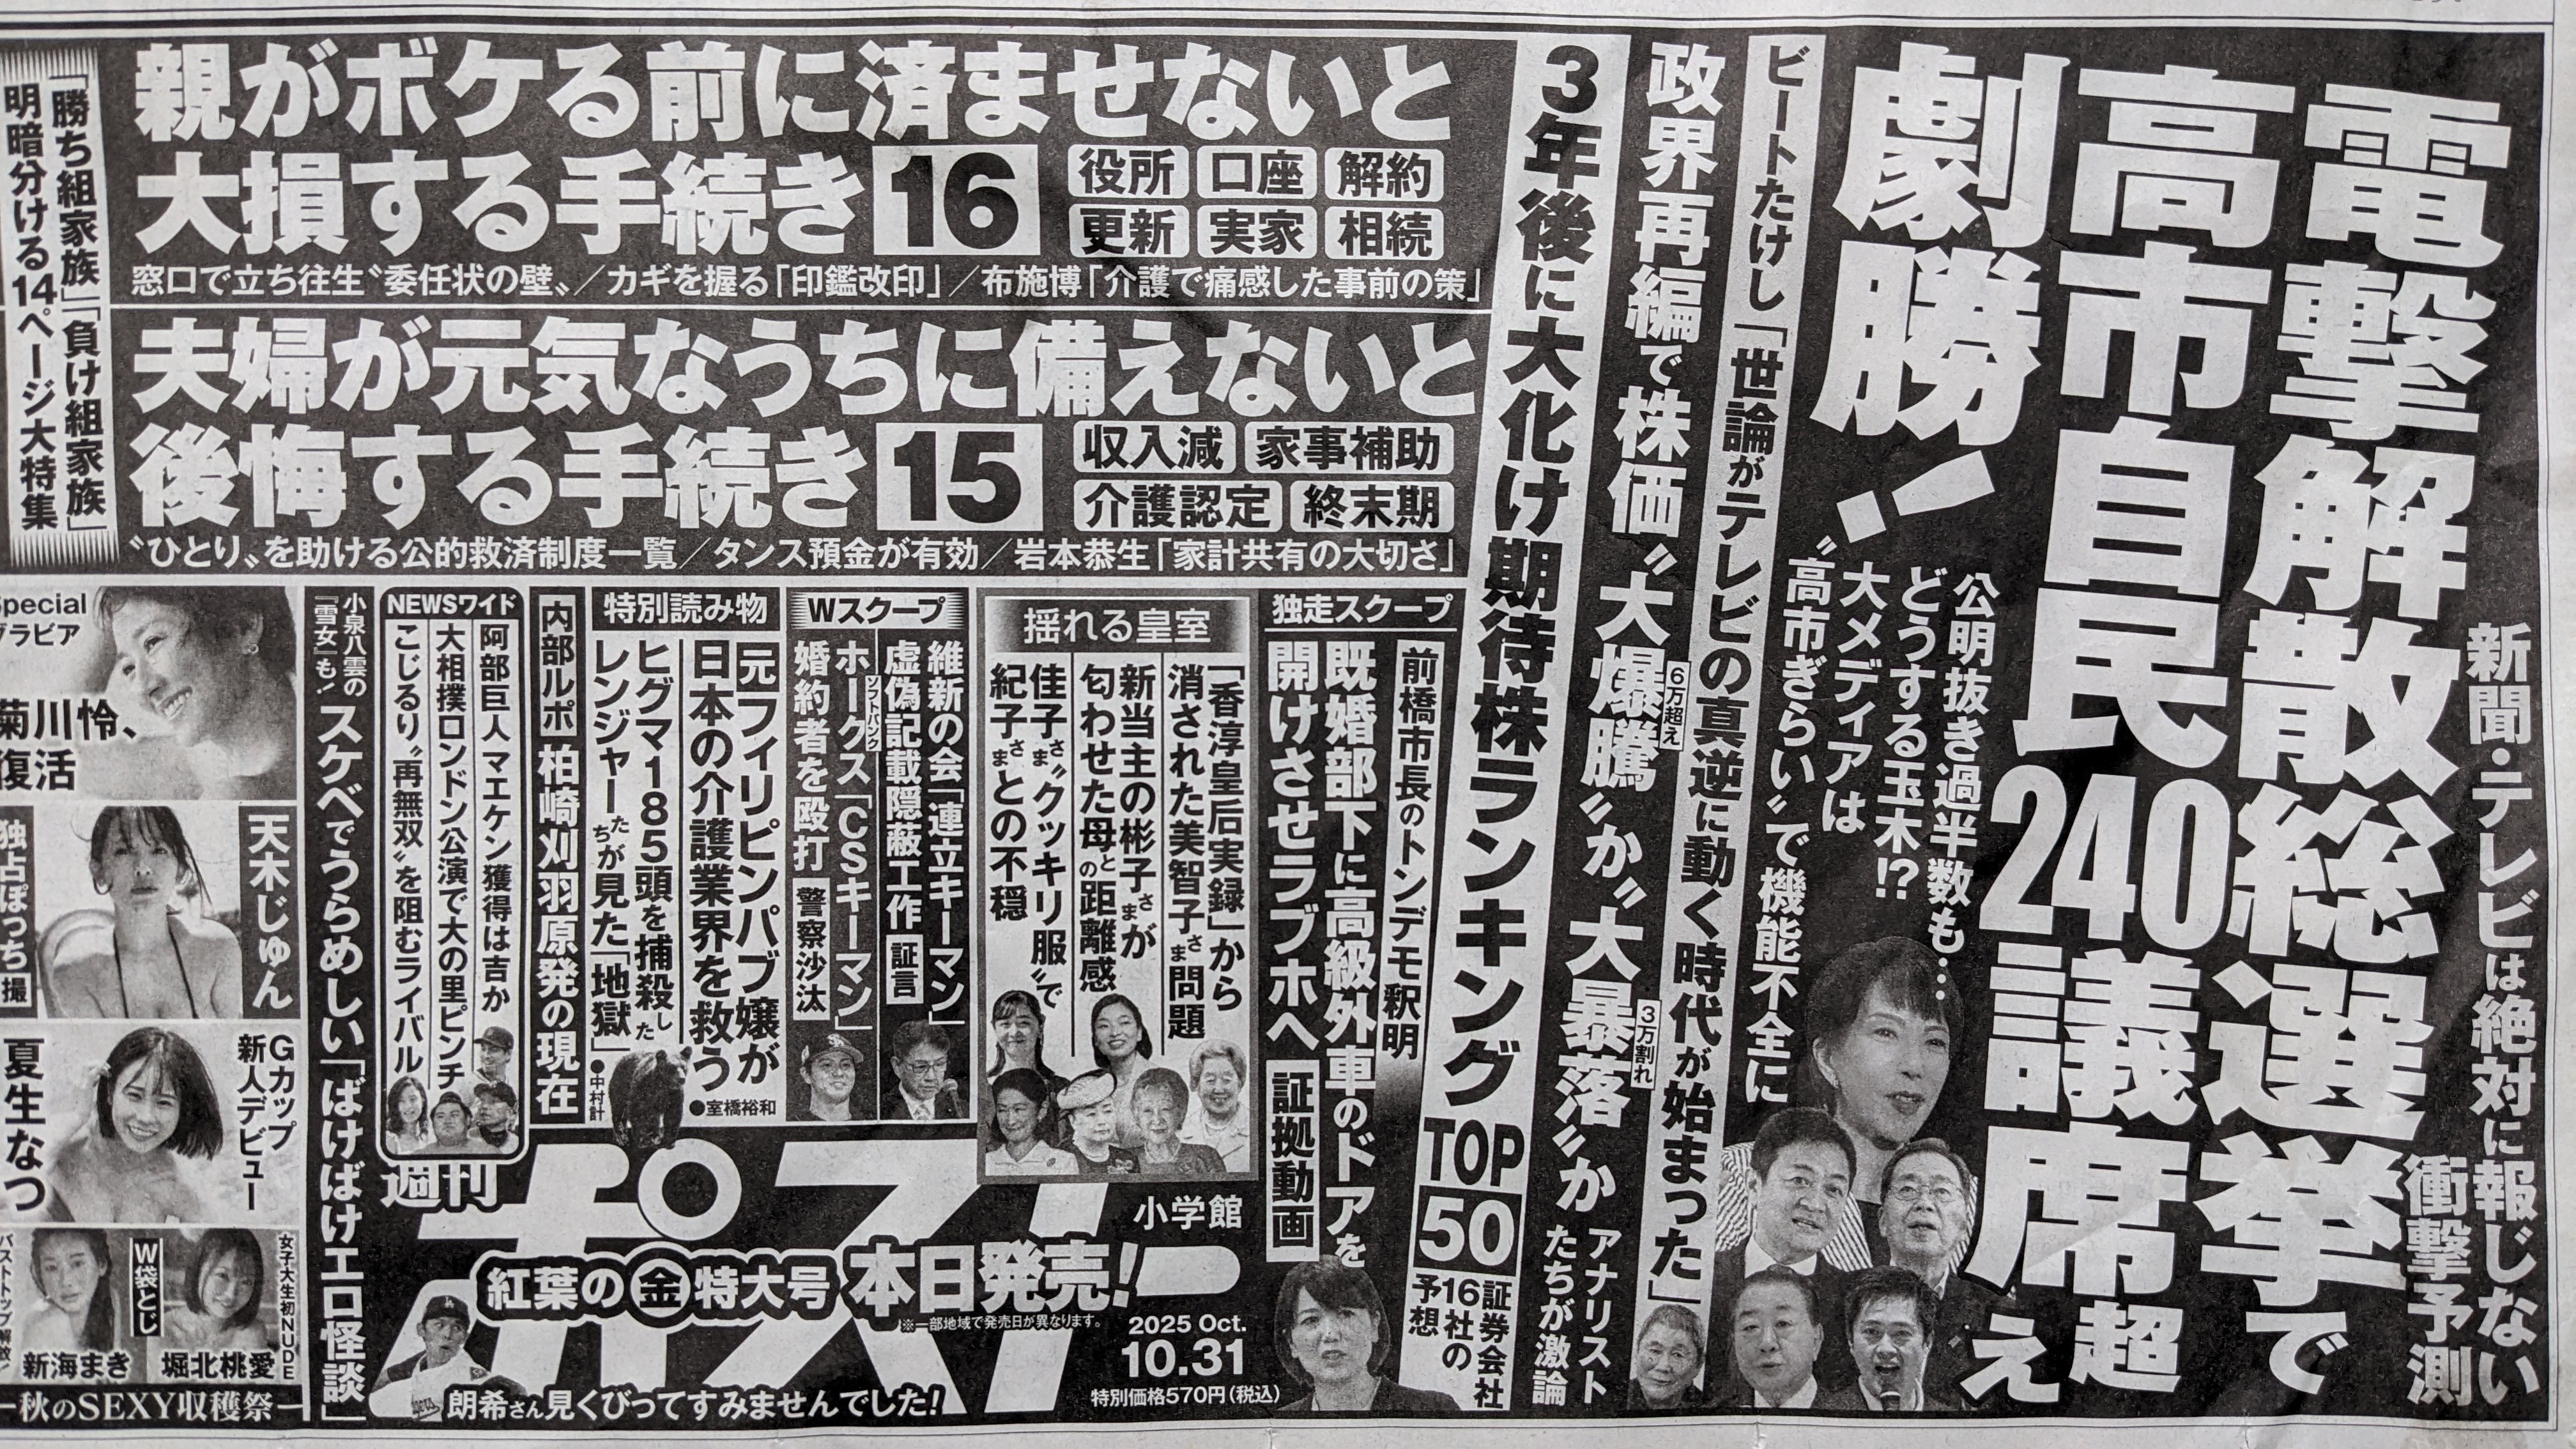 新聞・テレビは絶対に報じない
衝撃予測
電撃解散総選挙で
高市自民240議席超え
劇勝！
公明抜き過半数も…
どうする玉木!?
大メディアは
〝高市ぎらい〟で機能不全に
ビートたけし「世論がテレビの真逆に動く時代が始まった」
政界再編で株価〝大爆騰〟か〝大暴落〟か
6万超え
3万割れ
アナリスト
たちが激論
3年後に大化け期待株ランキングTOP50
証券会社
16社の
予想
親がボケる前に済ませないと
大損する手続き16
役所 口座 解約
更新 実家 相続
窓口で立ち往生〝委任状の壁〟／カギを握る「印鑑改印」／布施博「介護で痛感した事前の策」
夫婦が元気なうちに備えないと
後悔する手続き15
収入減 家事補助
介護認定 終末期
〝ひとり〟を助ける公的救済制度一覧／タンス預金が有効／岩本恭生「家計共有の大切さ」
「勝ち組家族」「負け組家族」
明暗分ける14ページ大特集
独走スクープ
前橋市長のトンデモ釈明
既婚部下に高級外車のドアを
開けさせラブホへ 証拠動画
揺れる皇室
「香淳皇后実録」から
消された美智子さま問題
新当主の彬子さまが
匂わせた母との距離感
佳子さま〝クッキリ服〟で
紀子さまとの不穏
Wスクープ
維新の会「連立キーマン」
虚偽記載隠蔽工作 証言
ソフトバンク
ホークス「CSキーマン」
婚約者を殴打 警察沙汰
特別読み物
元フィリピンパブ嬢が
日本の介護業界を救う
●室橋裕和
ヒグマ185頭を捕殺した
レンジャーたちが見た「地獄」
●中村計
内部ルポ 柏崎刈羽原発の現在
NEWSワイド
阿部巨人 マエケン獲得は吉か
大相撲ロンドン公演で大の里ピンチ
こじるり〝再無双〟を阻むライバル
小泉八雲の
『雪女』も！
スケベでうらめしい「ばけばけエロ怪談」
Special
グラビア
菊川怜、
復活
天木じゅん
独占ぽっち撮
Gカップ
新人デビュー
夏生なつ
女子大生初NUDE
堀北桃愛
W袋とじ
バストトップ解禁！
新海まき
秋のSEXY収穫祭
週刊
ポスト
小学館
紅葉の㊎特大号 本日発売！
※一部地域で発売日が異なります。
2025 Oct.
10.31
特別価格570円（税込）
朗希さん見くびってすみませんでした！